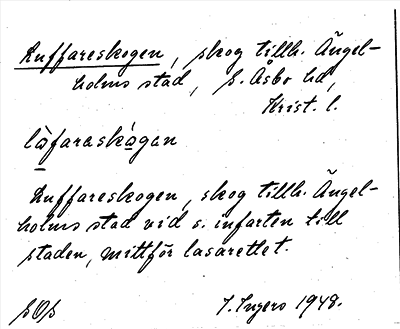 Luffareskogen, skog tillh. Ängel-
holms stad, S. Åsbo hd,
Krist. l.
làfaraskågan
Luffareskogen, skog tillh. Ängel-
holms stad vid s. infarten till
staden, mittför lasarettet.
SOS I. Ingers 1948.